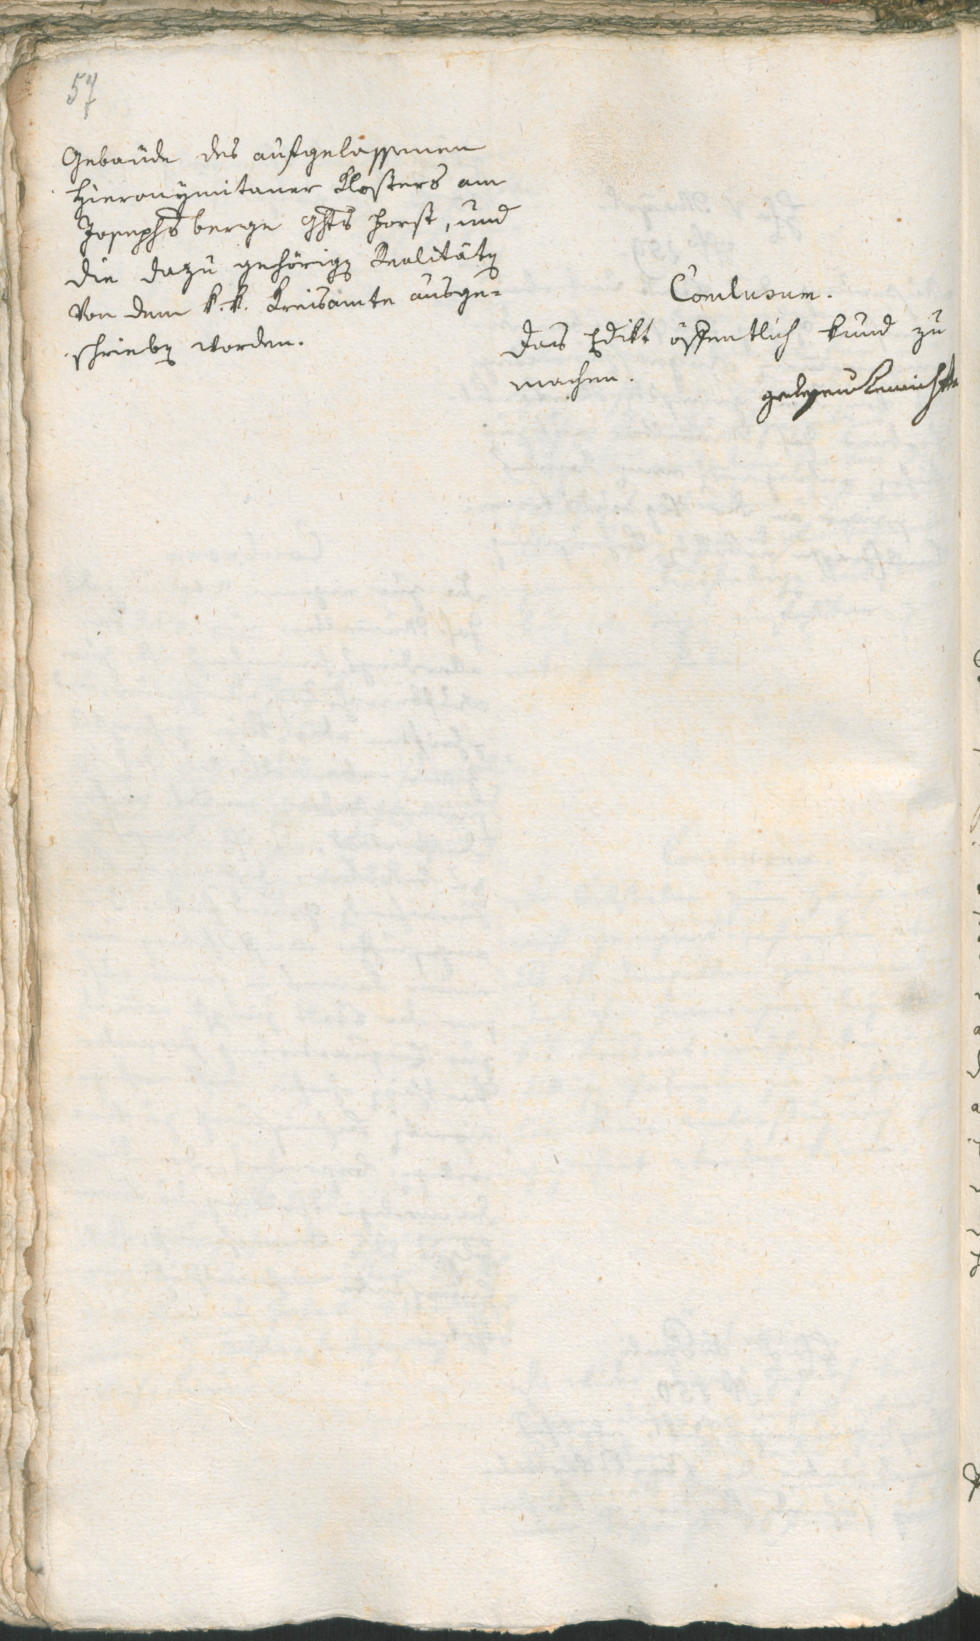 57
Gebäude des aufgelassenen
Hieronymitaner Klosters am
Josephsberge Ghts Forst, und
die dazu gehörigen Realitäten
von dem k. k. Kreisamte ausge-
schrieben worden.
Conclusum.
Das Edikt öffentlich kund zu
machen.